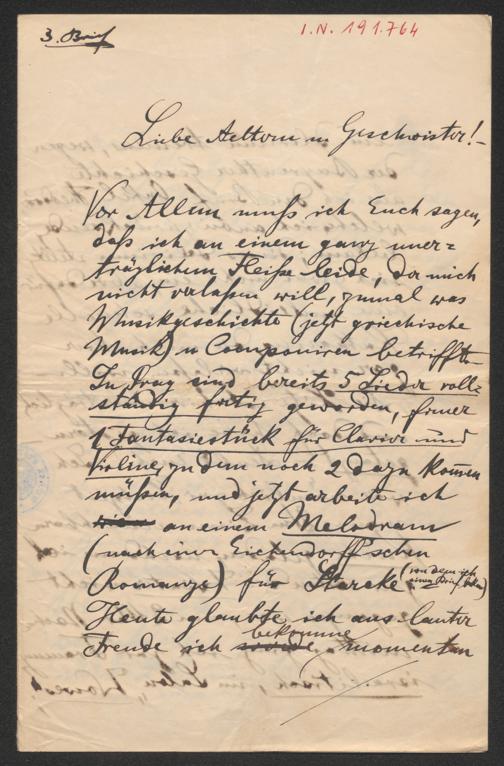 3. Brief
I.N. 191.764
Liebe Aeltern u Geschwister! –
Vor Allem muß ich Euch sagen,
daß ich an einem ganz uner=
träglichem Fleiße leide, der mich
nicht verlaßen will, zumal was
Musikgeschichte (jetzt griechische
Musik) u Componiren betrifft.
In Prag sind bereits 5 Lieder voll=
ständig fertig geworden, ferner
1 Fantasiestück für Clavier und
Violine, zu dem noch 2 dazu kom̅en
müßen, und jetzt arbeite ich
an einem Melodram
(nach einer Eichendorff'schen
Romanze) für Starcke (von dem ich
einen Brief bekam)
Heute glaubte ich aus lauter
Freude ich bekomme momentan